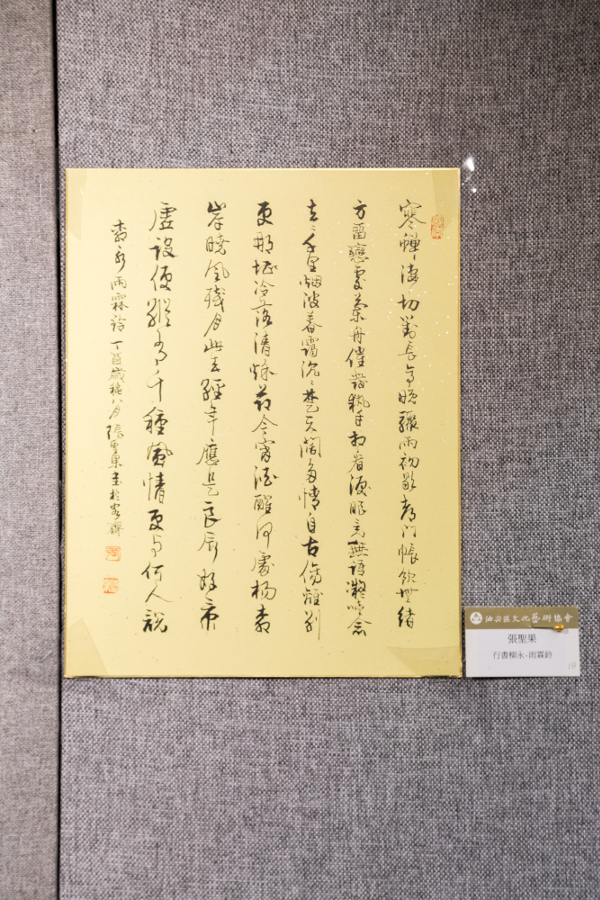 寒蟬淒切對長亭晚驟雨初歇都門帳飲無緒
方留戀處蘭舟催發執手相看淚眼竟無語凝噎念
去〻千里烟波暮靄沉〻楚天闊多情自古傷離別
更那堪冷落清秋節今宵酒醒何處楊柳
岸曉風殘月此去經年應是良辰好景
虛設便縱有千種風情更與何人說
柳永雨霖鈴丁酉歲桂八月張聖果書於
油尖區文化藝術協會
張聖果
行書柳永-雨霖鈴